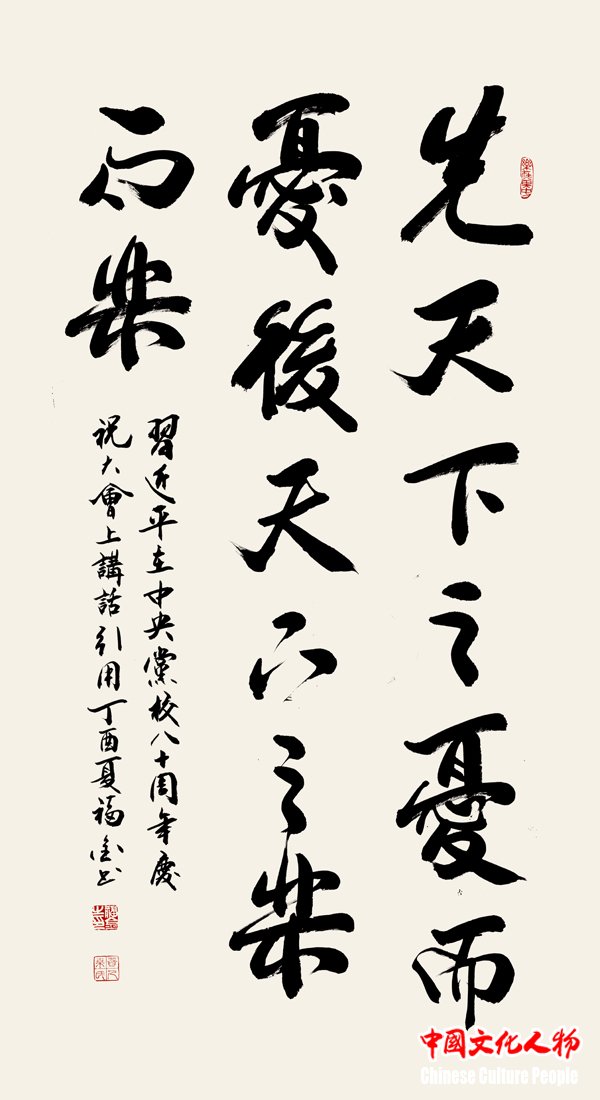 先天下之憂而
憂後天下之樂
而樂
習近平在中央黨校八十周年慶
祝大會上講話引用丁酉夏福金书
中國文化人物
Chinese Culture People